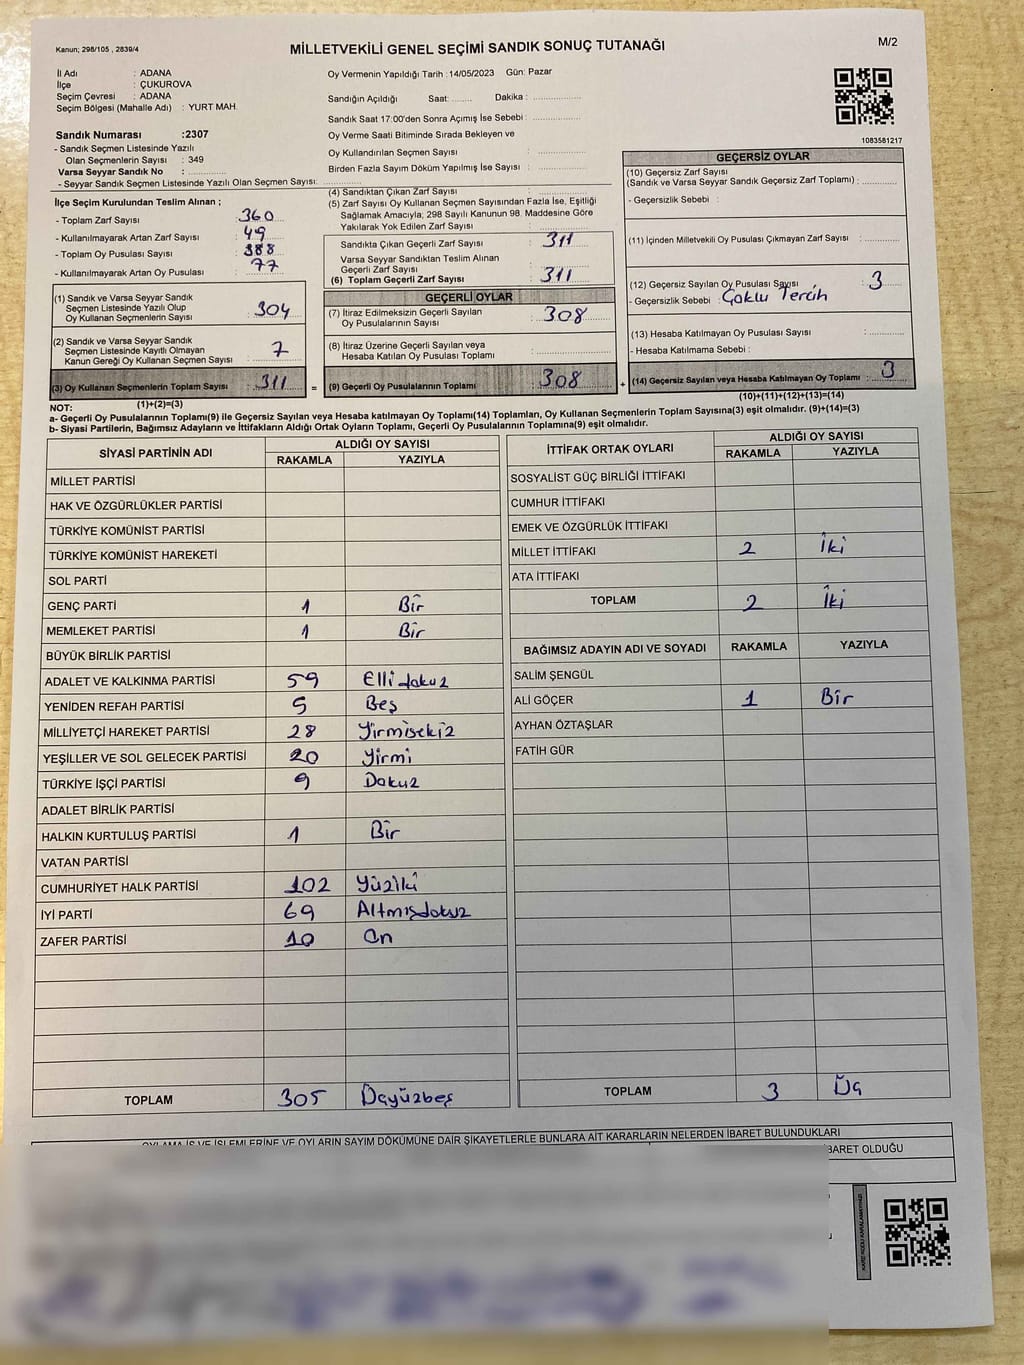 Kanun; 298/105 , 2839/4
MİLLETVEKİLİ GENEL SEÇİMİ SANDIK SONUÇ TUTANAĞI
M/2
İl Adı : ADANA
İlçe : ÇUKUROVA
Seçim Çevresi : ADANA
Seçim Bölgesi (Mahalle Adı) : YURT MAH.
Sandık Numarası :2307
- Sandık Seçmen Listesinde Yazılı
Olan Seçmenlerin Sayısı : 349
Varsa Seyyar Sandık No :
- Seyyar Sandık Seçmen Listesinde Yazılı Olan Seçmen Sayısı:
Oy Vermenin Yapıldığı Tarih :14/05/2023 Gün: Pazar
Sandığın Açıldığı Saat: Dakika :
Sandık Saat 17:00'den Sonra Açımış İse Sebebi :
Oy Verme Saati Bitiminde Sırada Bekleyen ve
Oy Kullandırılan Seçmen Sayısı :
Birden Fazla Sayım Döküm Yapılmış İse Sayısı :
1083581217
İlçe Seçim Kurulundan Teslim Alınan ;
- Toplam Zarf Sayısı : 360
- Kullanılmayarak Artan Zarf Sayısı : 49
- Toplam Oy Pusulası Sayısı : 388
- Kullanılmayarak Artan Oy Pusulası : 77
(1) Sandık ve Varsa Seyyar Sandık
Seçmen Listesinde Yazılı Olup
Oy Kullanan Seçmenlerin Sayısı : 304
(2) Sandık ve Varsa Seyyar Sandık
Seçmen Listesinde Kayıtlı Olmayan
Kanun Gereği Oy Kullanan Seçmen Sayısı : 7
(3) Oy Kullanan Seçmenlerin Toplam Sayısı : 311 =
(1)+(2)=(3)
(4) Sandıktan Çıkan Zarf Sayısı :
(5) Zarf Sayısı Oy Kullanan Seçmen Sayısından Fazla İse, Eşitliği
Sağlamak Amacıyla; 298 Sayılı Kanunun 98. Maddesine Göre
Yakılarak Yok Edilen Zarf Sayısı :
Sandıkta Çıkan Geçerli Zarf Sayısı : 311
Varsa Seyyar Sandıktan Teslim Alınan
Geçerli Zarf Sayısı :
(6) Toplam Geçerli Zarf Sayısı : 311
GEÇERLİ OYLAR
(7) İtiraz Edilmeksizin Geçerli Sayılan
Oy Pusulalarının Sayısı : 308
(8) İtiraz Üzerine Geçerli Sayılan veya
Hesaba Katılan Oy Pusulası Toplamı :
(9) Geçerli Oy Pusulalarının Toplamı : 308 +
GEÇERSİZ OYLAR
(10) Geçersiz Zarf Sayısı
(Sandık ve Varsa Seyyar Sandık Geçersiz Zarf Toplamı) :
- Geçersizlik Sebebi :
(11) İçinden Milletvekili Oy Pusulası Çıkmayan Zarf Sayısı :
(12) Geçersiz Sayılan Oy Pusulası Sayısı : 3
- Geçersizlik Sebebi : Çoklu Tercih
(13) Hesaba Katılmayan Oy Pusulası Sayısı :
- Hesaba Katılmama Sebebi :
(14) Geçersiz Sayılan veya Hesaba Katılmayan Oy Toplamı : 3
(10)+(11)+(12)+(13)=(14)
NOT:
a- Geçerli Oy Pusulalarının Toplamı(9) ile Geçersiz Sayılan veya Hesaba katılmayan Oy Toplamı(14) Toplamları, Oy Kullanan Seçmenlerin Toplam Sayısına(3) eşit olmalıdır. (9)+(14)=(3)
b- Siyasi Partilerin, Bağımsız Adayların ve İttifakların Aldığı Ortak Oyların Toplamı, Geçerli Oy Pusulalarının Toplamına(9) eşit olmalıdır.
SİYASİ PARTİNİN ADI ALDIĞI OY SAYISI
RAKAMLA YAZIYLA
MİLLET PARTİSİ
HAK VE ÖZGÜRLÜKLER PARTİSİ
TÜRKİYE KOMÜNİST PARTİSİ
TÜRKİYE KOMÜNİST HAREKETİ
SOL PARTİ
GENÇ PARTİ 1 Bir
MEMLEKET PARTİSİ 1 Bir
BÜYÜK BİRLİK PARTİSİ
ADALET VE KALKINMA PARTİSİ 59 Elli dokuz
YENİDEN REFAH PARTİSİ 5 Beş
MİLLİYETÇİ HAREKET PARTİSİ 28 Yirmisekiz
YEŞİLLER VE SOL GELECEK PARTİSİ 20 Yirmi
TÜRKİYE İŞÇİ PARTİSİ 9 Dokuz
ADALET BİRLİK PARTİSİ
HALKIN KURTULUŞ PARTİSİ 1 Bir
VATAN PARTİSİ
CUMHURİYET HALK PARTİSİ 102 Yüziki
İYİ PARTİ 69 Altmışdokuz
ZAFER PARTİSİ 10 On
TOPLAM 305 Üçyüzbeş
İTTİFAK ORTAK OYLARI ALDIĞI OY SAYISI
RAKAMLA YAZIYLA
SOSYALİST GÜÇ BİRLİĞİ İTTİFAKI
CUMHUR İTTİFAKI
EMEK VE ÖZGÜRLÜK İTTİFAKI
MİLLET İTTİFAKI 2 İki
ATA İTTİFAKI
TOPLAM 2 İki
BAĞIMSIZ ADAYIN ADI VE SOYADI RAKAMLA YAZIYLA
SALİM ŞENGÜL
ALİ GÖÇER 1 Bir
AYHAN ÖZTAŞLAR
FATİH GÜR
TOPLAM 3 Üç
OYLAMA İŞ VE İŞLEMLERİNE VE OYLARIN SAYIM DÖKÜMÜNE DAİR ŞİKAYETLERLE BUNLARA AİT KARARLARIN NELERDEN İBARET BULUNDUKLARI
BARET OLDUĞU